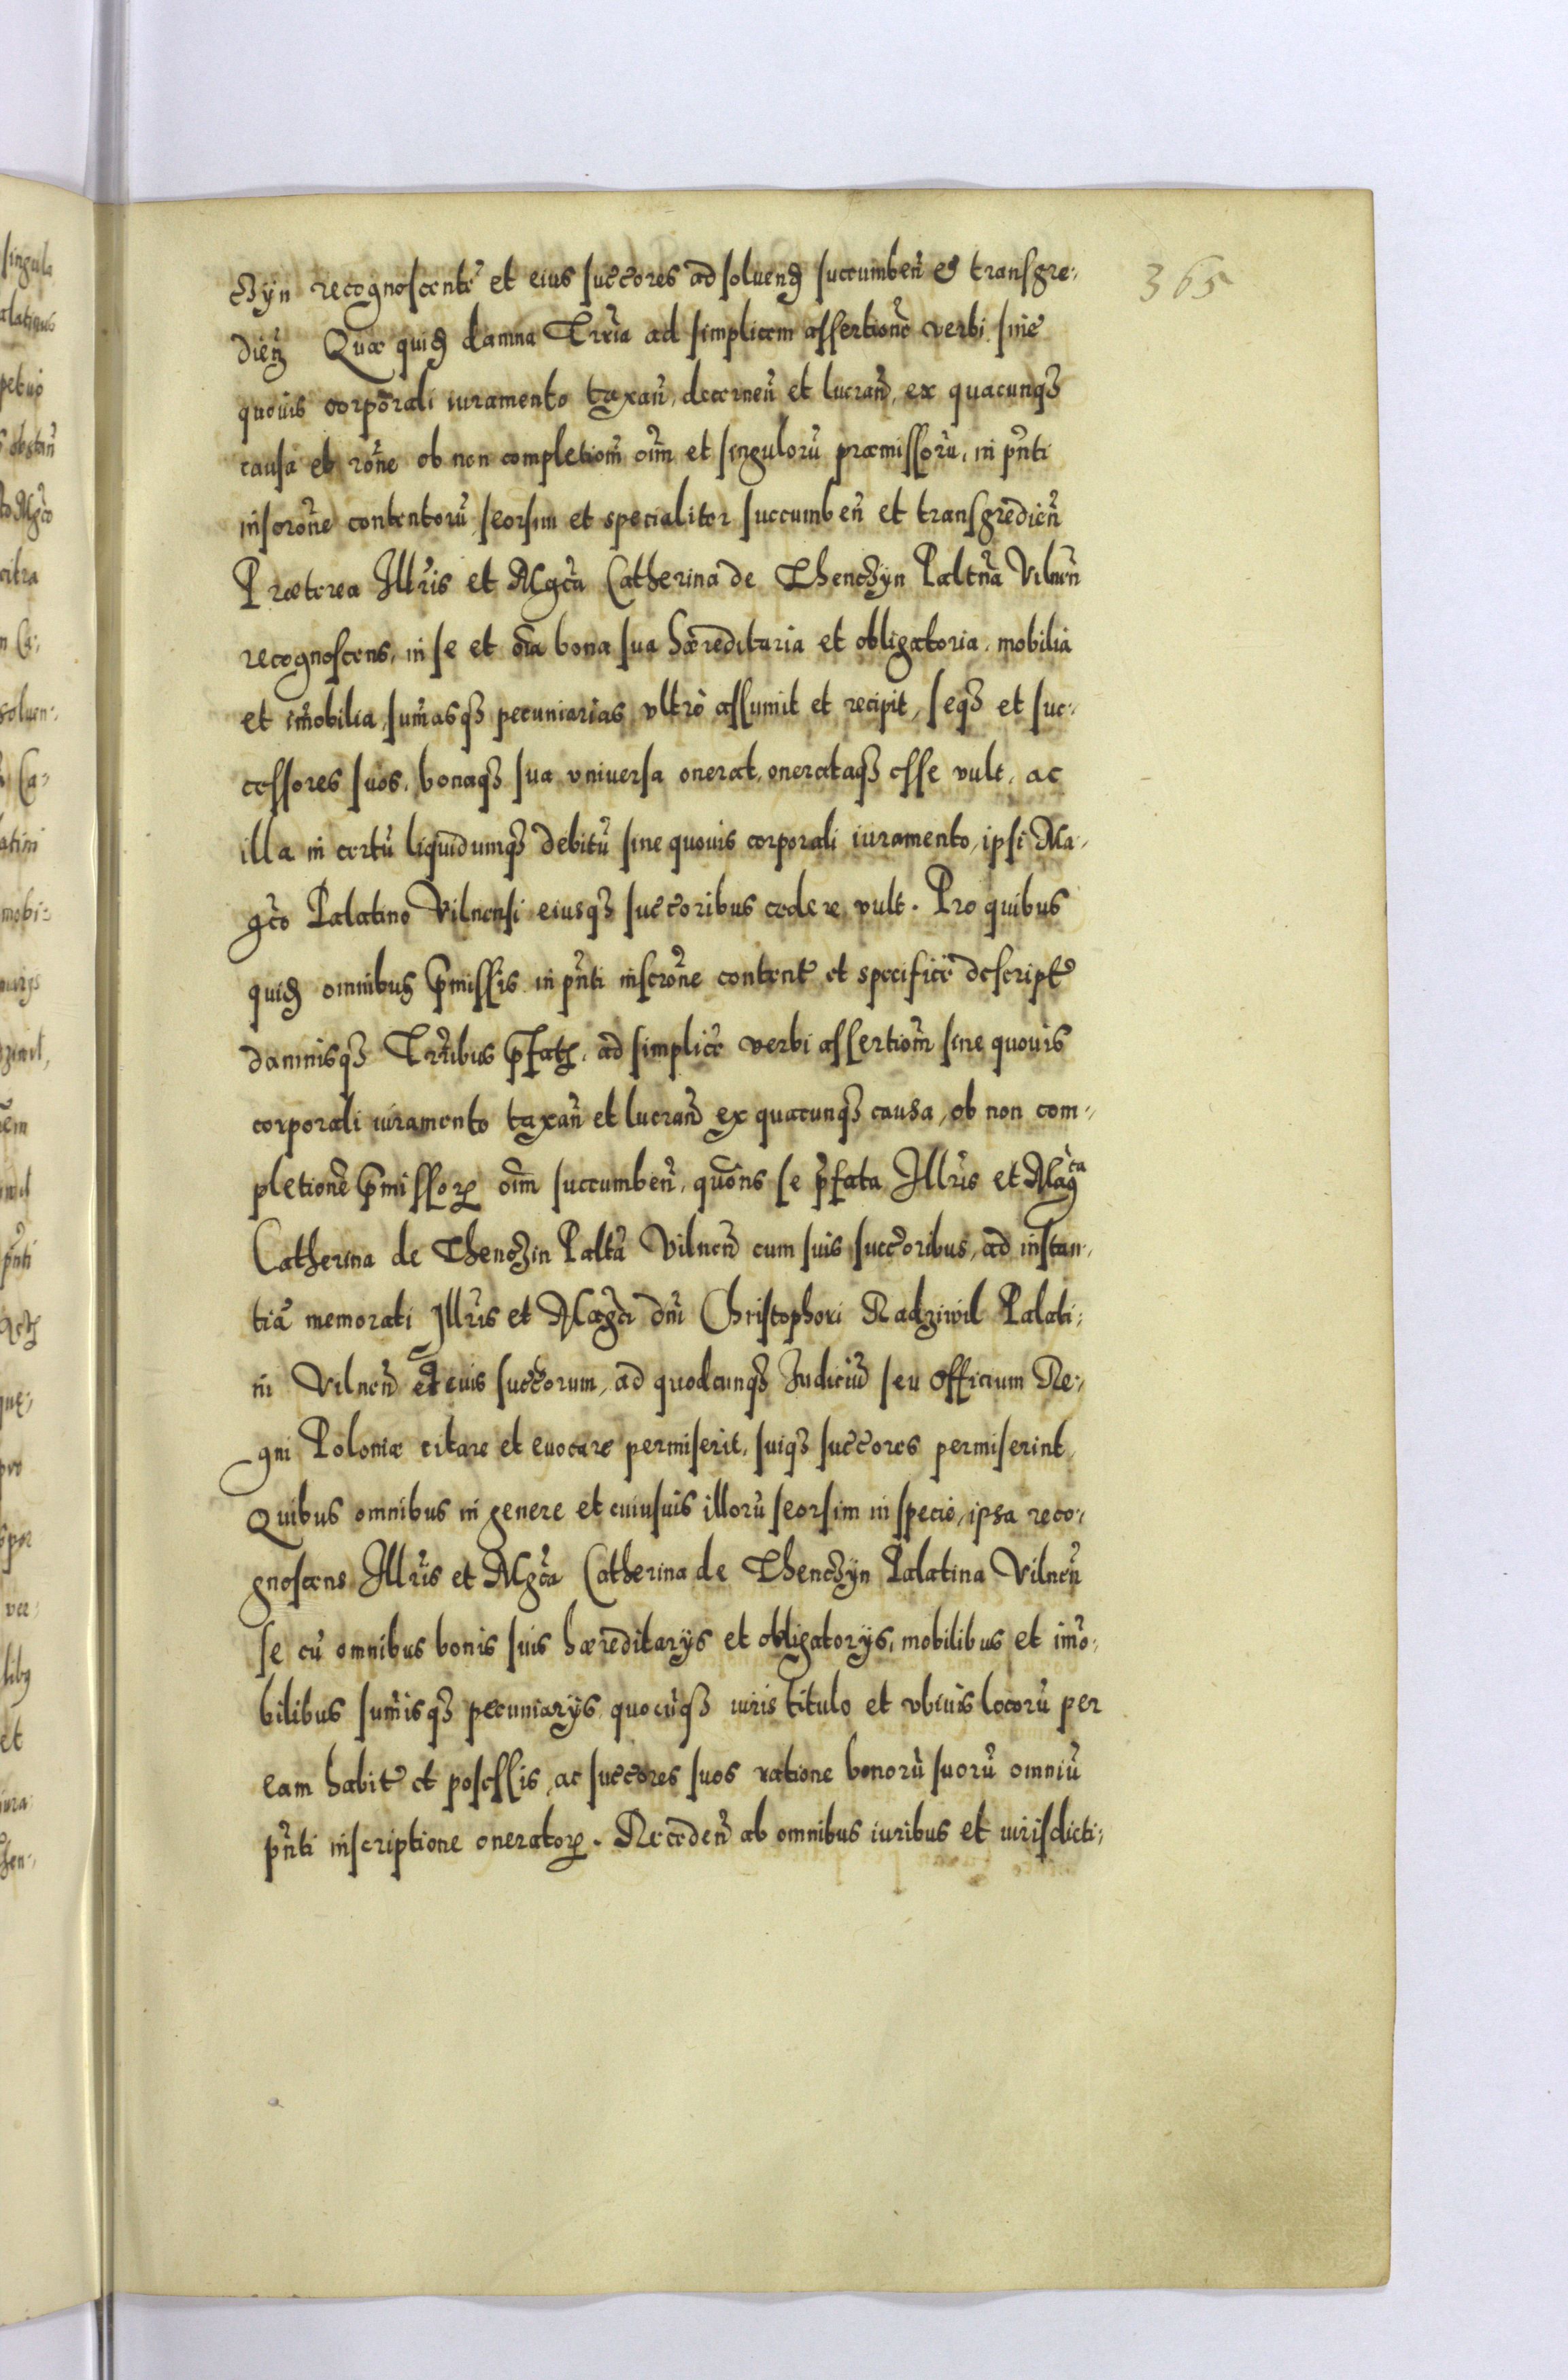 365
czÿn recognoscente et eius succores ad soluend succumben et transgre⸗
dien Quæ quid damna Trria ad simplicem assertione verbi sine
quouis corporali iuramento taxan, decernen et lucran, ex quacunqз
causa et rone ob non completiom oim et singuloru præmissoru, in pnti
inscrone contentoru seorsim et specialiter succumben et transgredien
Præterea Illris et Mgca Catherina de Thenczÿn Paltna Vilnen
recognoscens, in se et oia bona sua hæreditaria et obligatoria, mobilia
et imobilia, sumasqз pecuniarias vltro assumit et recipit, seqз et suc⸗
cessores suos, bonaqз sua vniuersa onerat, onerataqз esse vult, ac
illa in certu liquidumqз debitu sine quouis corporali iuramento, ipsi Ma⸗
gco Palatino Vilnensi eiusqз succoribus cedere vult. Pro quibus
quid omnibus pmissis in pnti inscrone content et specifice descript
damnisqз Trribus pfat, ad simplice verbi assertiom sine quouis
corporali iuramento taxan et lucran ex quacunqз causa, ob non com⸗
pletione pmissoꝝ oim succumben, quons se pfata Illris et Magca
Catherina de Thenczin Palta Vilnen cum suis succoribus, ad instan⸗
tia memorati Illris et Magci dni Christophori Radziwil Palati⸗
ni Vilnen et euis succorum, ad quodcunqз Iudiciu seu Officium Re⸗
gni Poloniæ citare et euocare permiserit, suiqз succores permiserint
Quibus omnibus in genere et cuiusuis illoru seorsim in specie, ipsa reco⸗
gnoscens Illris et Mgca Catherina de Thenczÿn Palatina Vilnen
se cu omnibus bonis suis hæreditarÿs et obligatorÿs, mobilibus et imo⸗
bilibus sumisqз pecuniarÿs quocuqз iuris titulo et vbiuis locoru per
eam habit et posessis, ac succores suos ratione bonoru suoru omniu
pnti inscriptione oneratoꝝ. Receden ab omnibus iuribus et iurisdicti⸗